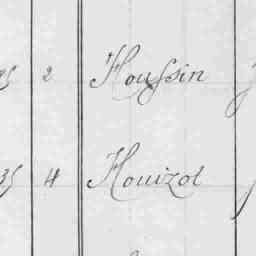 2 Houssin
4 Houizot